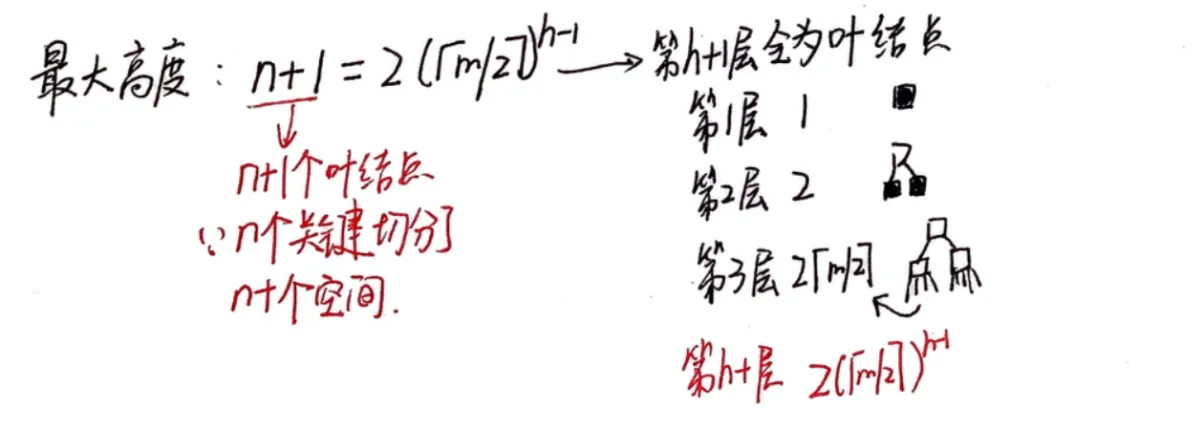 最大高度： n+1 = 2(⌈m/2⌉)^{h-1} → 第h+1层全为叶结点
n+1个叶结点
∵ n个关键切分了
n+1个空间.
第1层 1
第2层 2
第3层 2⌈m/2⌉
第h+1层 2(⌈m/2⌉)^{h-1}